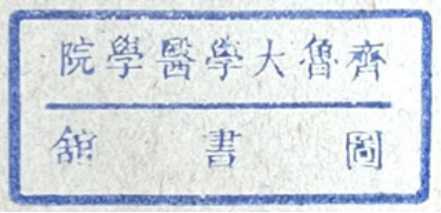 齊魯大學醫學院
圖書館